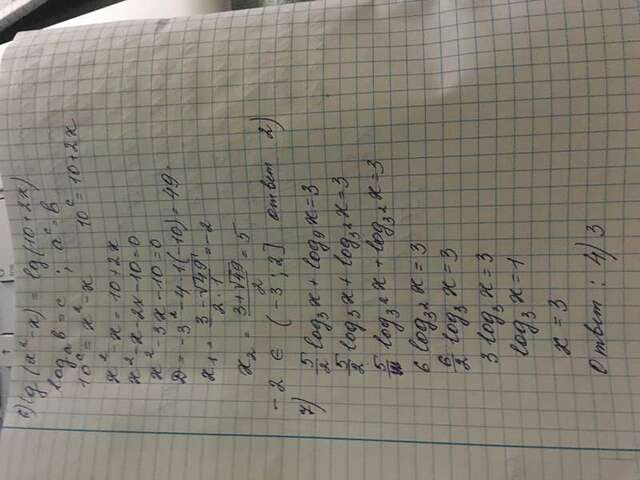 6) lg (x² - x) = lg (10 + 2x)
logₐ b = c ; aᶜ = b
10ᶜ = x² - x 10ᶜ = 10 + 2x
x² - x = 10 + 2x
x² - x - 2x - 10 = 0
x² - 3x - 10 = 0
D = -3² - 4·1·(-10) = 49
x₁ = (3 - √49)/(2·1) = -2
x₂ = (3 + √49)/2 = 5
-2 ∈ (-3 ; 2] ответ 2)
7) 5/2 log₃ x + log₉ x = 3
5/2 log₃ x + log₃² x = 3
5 log₃² x + log₃² x = 3
6 log₃² x = 3
6/2 log₃ x = 3
3 log₃ x = 3
log₃ x = 1
x = 3
Ответ : 4) 3